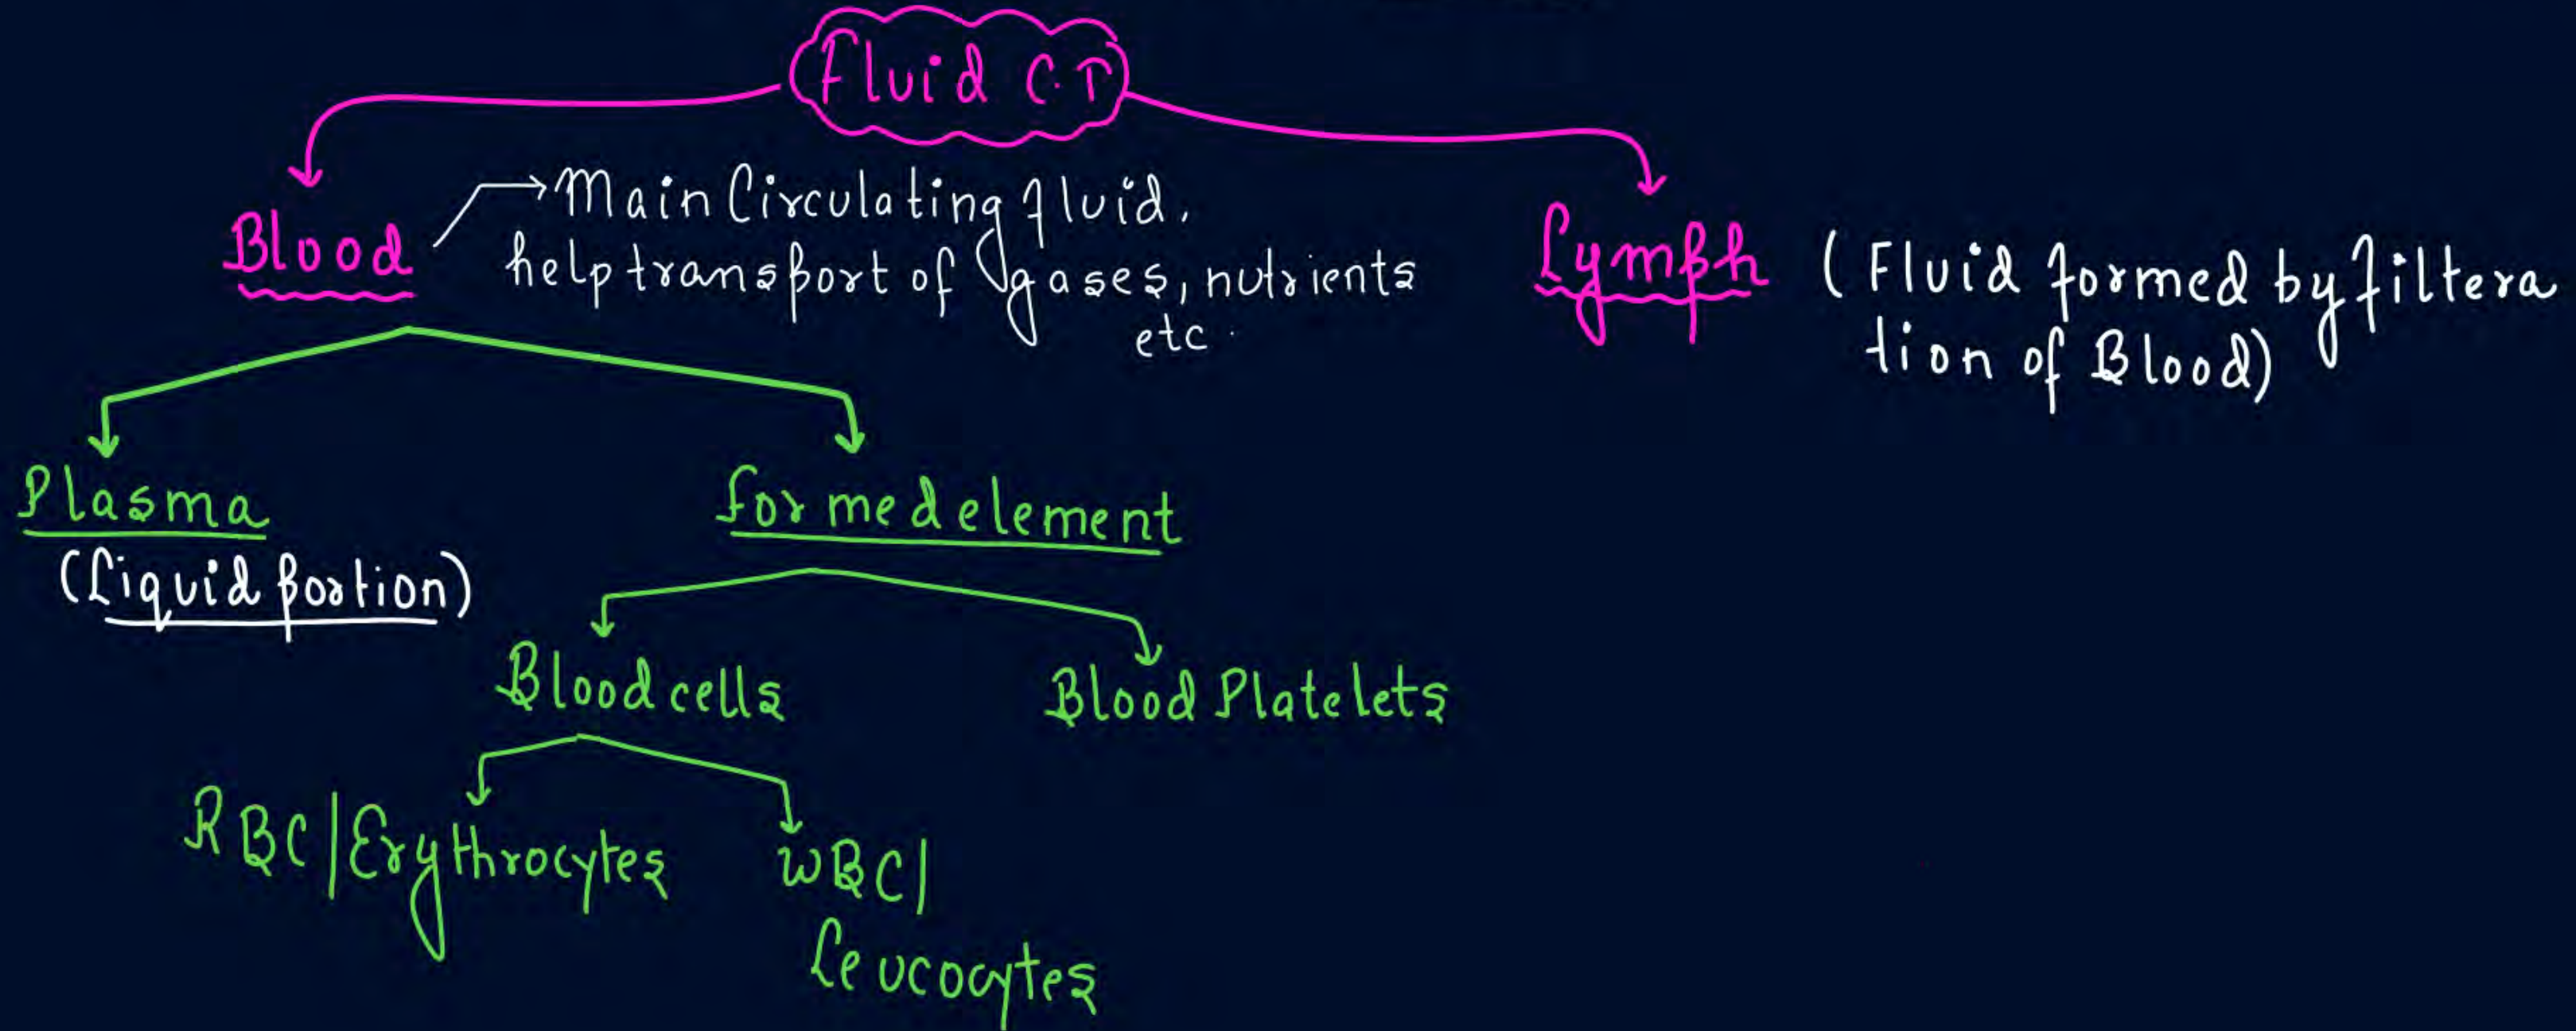 Fluid C.T
Blood
→ Main Circulating fluid,
help transport of gases, nutrients
etc.
Lymph
(Fluid formed by filtera
tion of Blood)
Plasma
(Liquid portion)
formed element
Blood cells
Blood Platelets
RBC/Erythrocytes
WBC/
Leucocytes